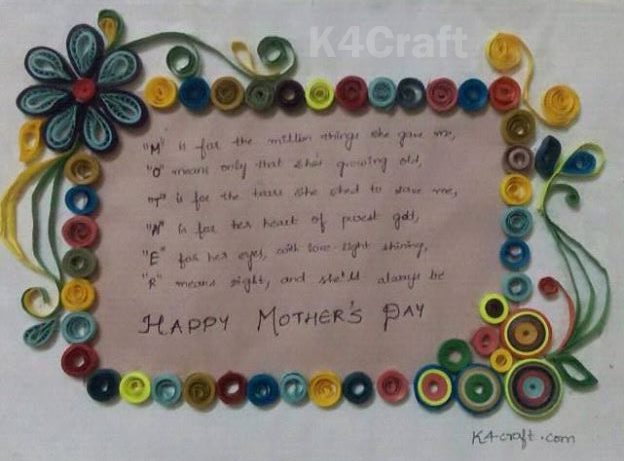 K4Craft
"M" is for the million things she gave me,
"O" means only that she's growing old,
"T" is for the tears she shed to save me,
"H" is for her heart of purest gold,
"E" for her eyes, with love-light shining,
"R" means right, and she'll always be
HAPPY MOTHER'S DAY
K4craft.com